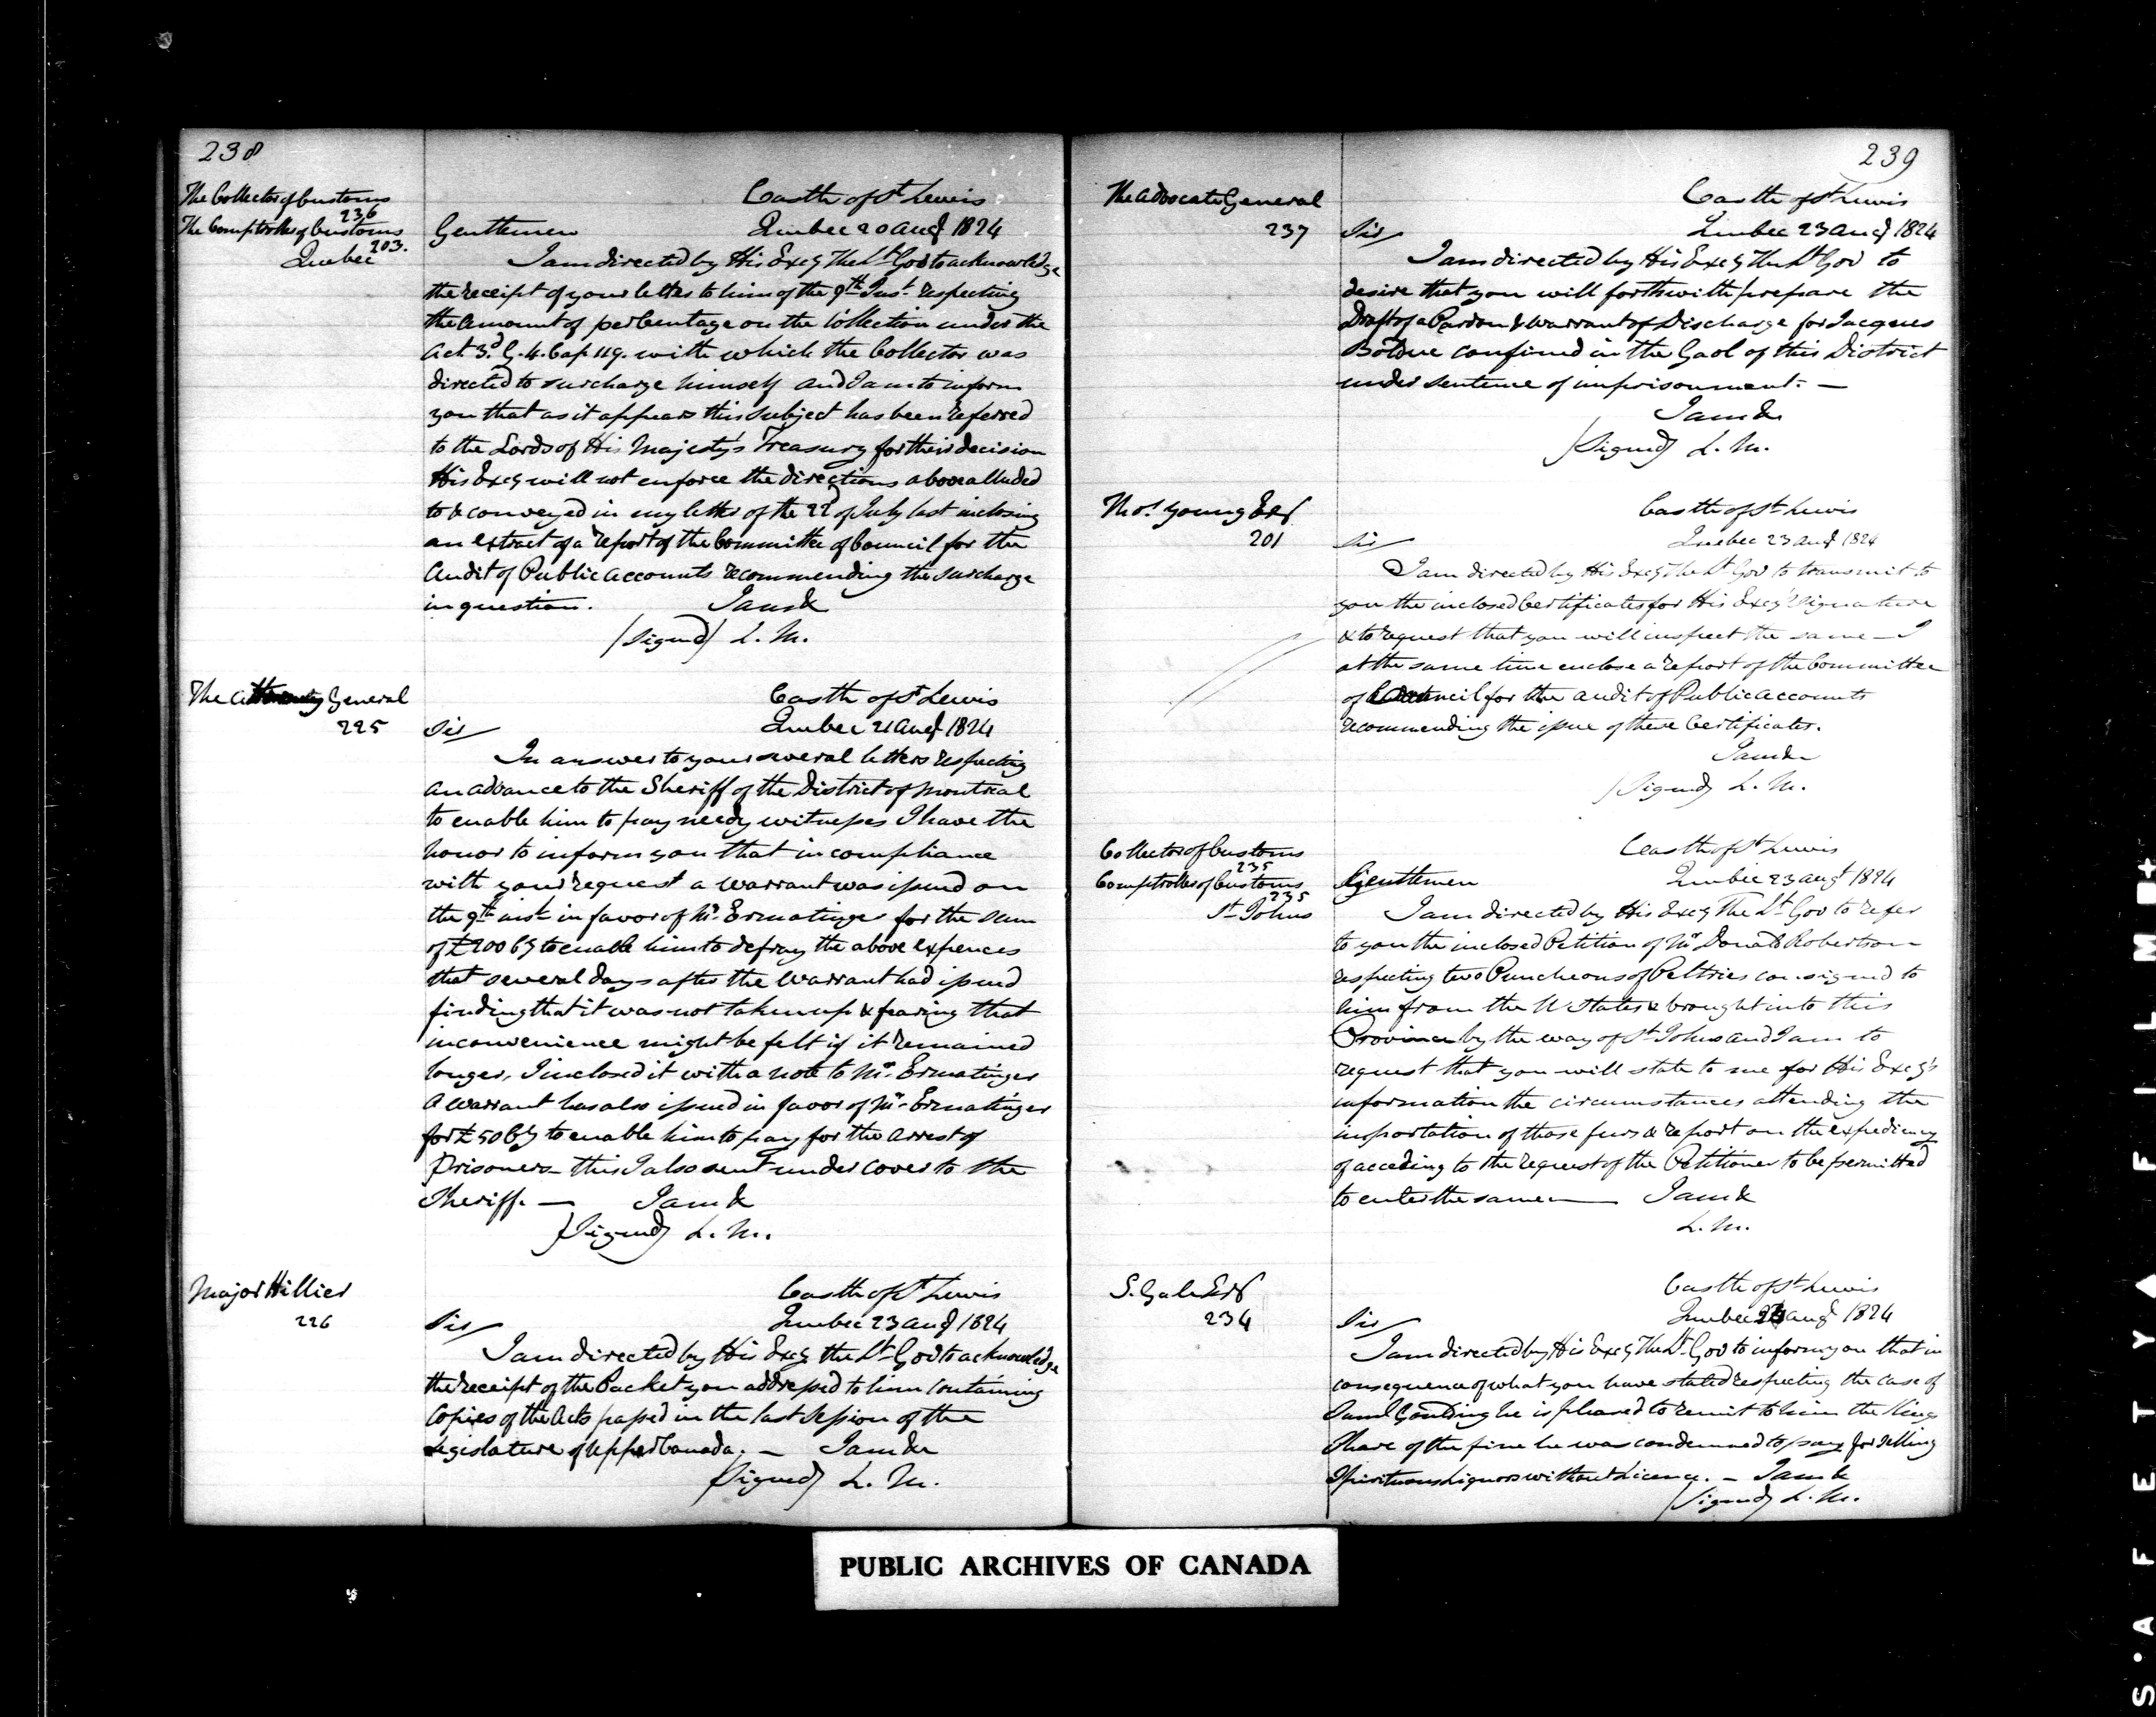 238
The Collector of Customs
236
The Comptroller of Customs
203.
Quebec
Castle of St Lewis
Gentlemen Quebec 20 Augt 1824
I am directed by His Excy The Lt Gov to acknowledge
the receipt of your letter to him of the 9th Inst. respecting
the amount of per Centage on the Collection under the
Act 3d G. 4. Cap 119. with which the Collector was
directed to surcharge himself and I am to inform
you that as it appears this subject has been referred
to the Lords of His Majesty's Treasury for their decision
His Excy will not enforce the directions above alluded
to & conveyed in my letter of the 22d of July last inclosing
an extract of a report of the Committee of Council for the
Audit of Public Accounts recommending the surcharge
in question. I am &
(Signed) L. M.
The Attorney General
225
Castle of St Lewis
Sir/ Quebec 21 Augt 1824
In answer to your several letters respecting
an advance to the Sheriff of the District of Montreal
to enable him to pay needy witnesses I have the
honor to inform you that in compliance
with your request a Warrant was issued on
the 9th inst in favor of Mr. Ermatinger for the sum
of £200 Cy to enable him to defray the above expences
that several days after the Warrant had issued
finding that it was not taken up & fearing that
inconvenience might be felt if it remained
longer, I inclosed it with a note to Mr. Ermatinger
A Warrant has also issued in favor of Mr. Ermatinger
for £50 Cy to enable him to pay for the arrest of
Prisoners – this I also sent under cover to the
Sheriff. — I am &
(Signed) L. M.
Major Hillier
226
Castle of St Lewis
Sir/ Quebec 23 Augt 1824
I am directed by His Excy the Lt Gov to acknowledge
the receipt of the Packet you addressed to him containing
Copies of the Acts passed in the last Session of the
Legislature of Upper Canada. – I am &c
(Signed) L. M.
239
The Advocate General
237
Castle of St Lewis
Sir/ Quebec 23 Augt 1824
I am directed by His Excy The Lt Gov to
desire that you will forthwith prepare the
Draft of a Pardon & Warrant of Discharge for Jacques
Bolduc confined in the Gaol of this District
under sentence of imprisonment. —
I am &
(Signed) L. M.
Thos. Young Esqr
201
Castle of St Lewis
Sir/ Quebec 23 Augt 1824
I am directed by His Excy The Lt Gov to transmit to
you the inclosed Certificates for His Excy's signature
& to request that you will inspect the same — I
at the same time enclose a report of the Committee
of Council for the audit of Public Accounts
recommending the issue of these Certificates.
I am &c
(Signed) L. M.
Collector of Customs
235
Comptroller of Customs
235
St Johns
Castle of St Lewis
Gentlemen Quebec 23 Augt 1824
I am directed by His Excy The Lt Gov to refer
to you the inclosed Petition of Mr Donald Robertson
respecting two Puncheons of Peltries consigned to
him from the U States & brought into this
Province by the way of St Johns and I am to
request that you will state to me for His Excy's
information the circumstances attending the
importation of those furs & report on the expediency
of acceding to the request of the Petitioner to be permitted
to enter the same — I am &
L. M.
S. Gale Esqr
234
Castle of St Lewis
Sir/ Quebec Augt 1824
I am directed by His Excy The Lt Gov to inform you that in
consequence of what you have stated respecting the case of
Saml Goulding he is pleased to remit to him the Kings
Share of the fine he was condemned to pay for selling
Spirituous Liquors without Licence. – I am &
(Signed) L. M.
PUBLIC ARCHIVES OF CANADA
S·A F E T Y F I L M